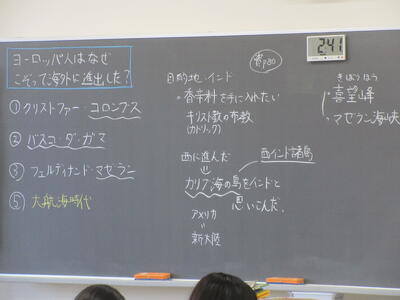 ヨーロッパ人はなぜ
こぞって海外に進出した?
①クリストファー・コロンブス
②バスコ・ダ・ガマ
③フェルディナンド・マゼラン
⑤大航海時代
目的地・インド
・香辛料を手に入れたい
キリスト教の布教
(カトリック)
西に進んだ
西インド諸島
カリブ海の島をインドと
思いこんだ。
アメリカ
新大陸
2:41
きぼうほう
喜望峰
マゼラン海峡